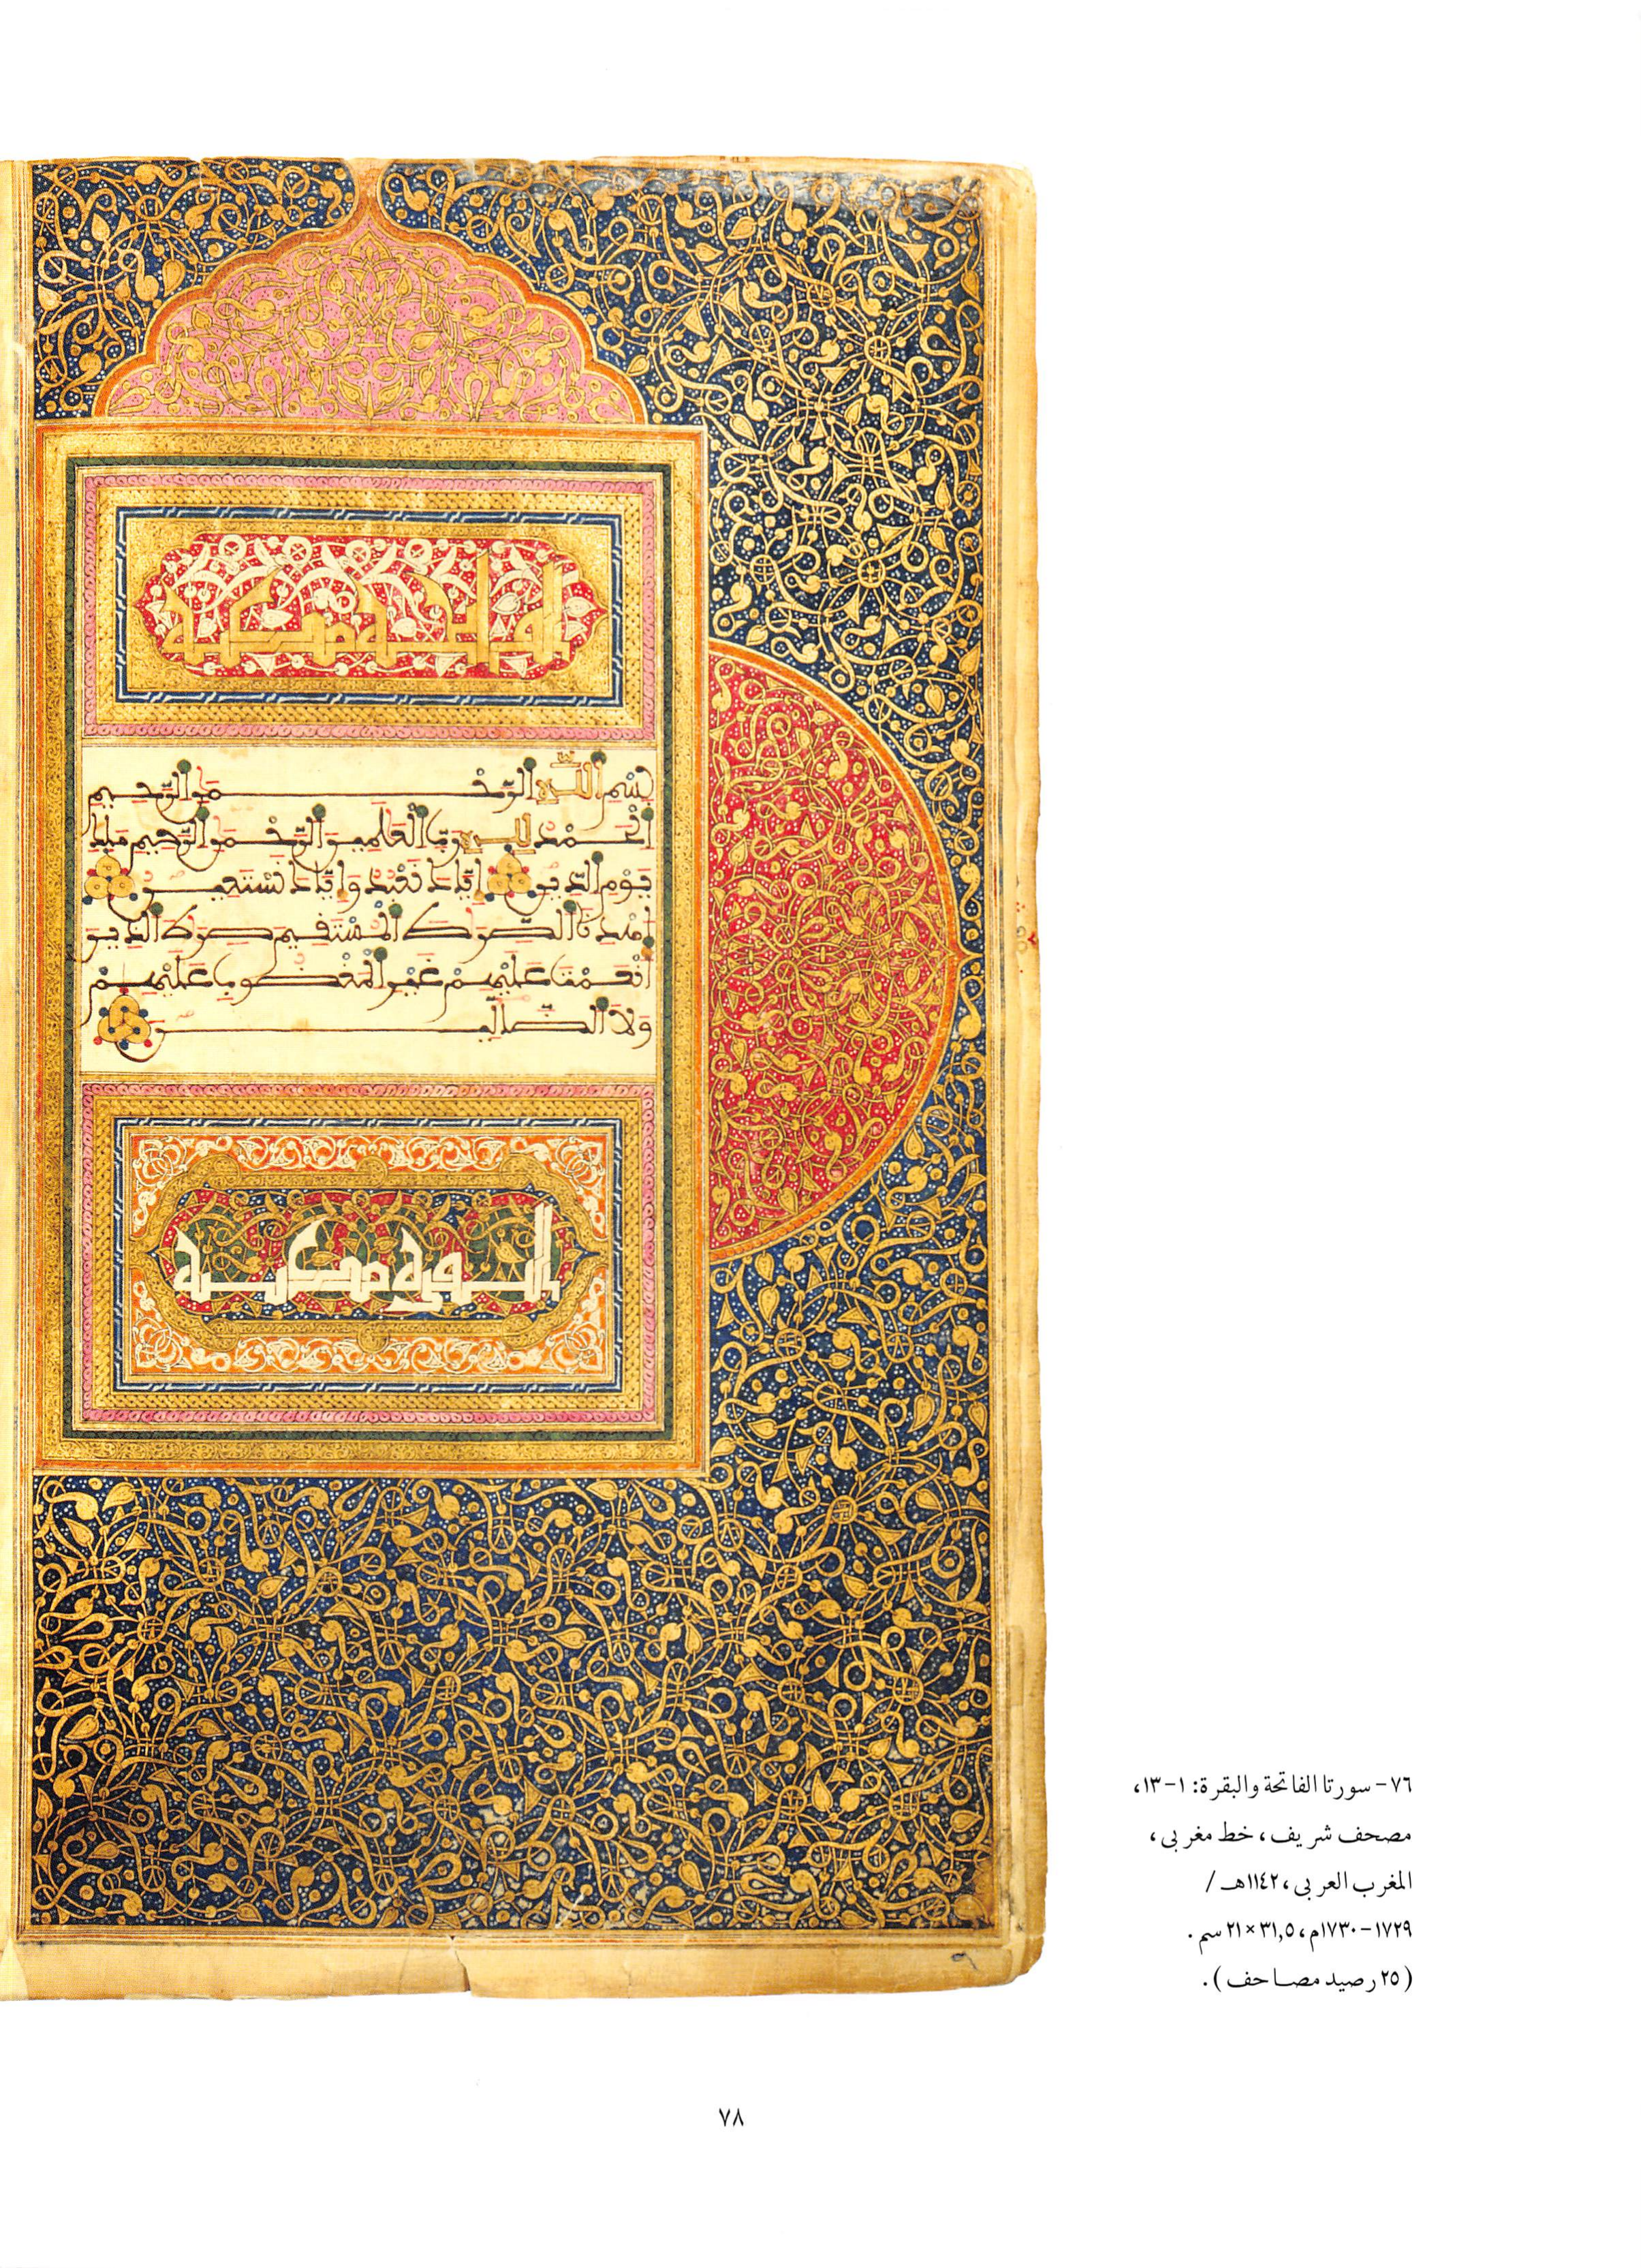 الفاتحة مكية
بِسْمِ اللَّهِ الرَّحْمَنِ الرَّحِيمِ
الْحَمْدُ لِلَّهِ رَبِّ الْعَلَمِينَ الرَّحْمَنِ الرَّحِيمِ مَلِكِ
يَوْمِ الدِّينِ إِيَّاكَ نَعْبُدُ وَإِيَّاكَ نَسْتَعِينُ
اهْدِنَا الصِّرَطَ الْمُسْتَقِيمَ صِرَطَ الَّذِينَ
أَنْعَمْتَ عَلَيْهِمْ غَيْرِ الْمَغْضُوبِ عَلَيْهِمْ
وَلَا الضَّالِّينَ
٧٦- سورتا الفاتحة والبقرة: ١-١٣،
مصحف شريف، خط مغربى،
المغرب العربى، ١١٤٢هـ /
١٧٢٩-١٧٣٠م، ٣١,٥ × ٢١ سم.
(٢٥ رصيد مصاحف).
٧٨